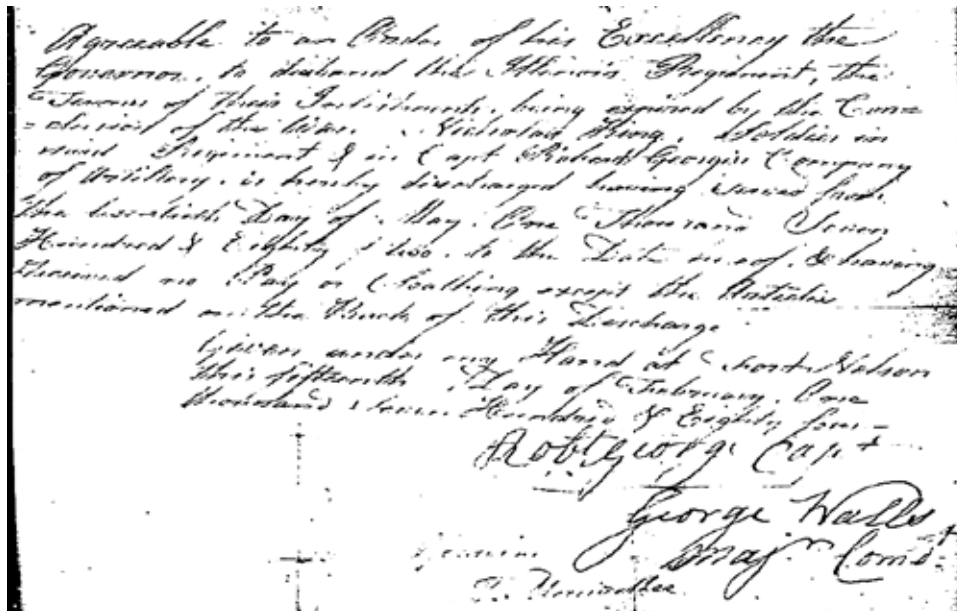 Agreeable to an Order of his Excellency the
Governor, to disband the Illinois Regiment, the
Terms of their Inlistments, being expired by the Con=
=clusion of the War. Nicholas King, Soldier in
said Regiment & in Capt Robert George's Company
of Artillery, is hereby discharged having served from
the twentieth Day of May, One Thousand Seven
Hundred & Eighty two, to the Date hereof, & having
Received no Pay or Cloathing except the Articles
mentioned on the Back of this Discharge
Given under my Hand at Fort Nelson
this fifteenth Day of February, One
thousand seven Hundred & Eighty four -
Robt George Capt
George Walls
Majr Comdt